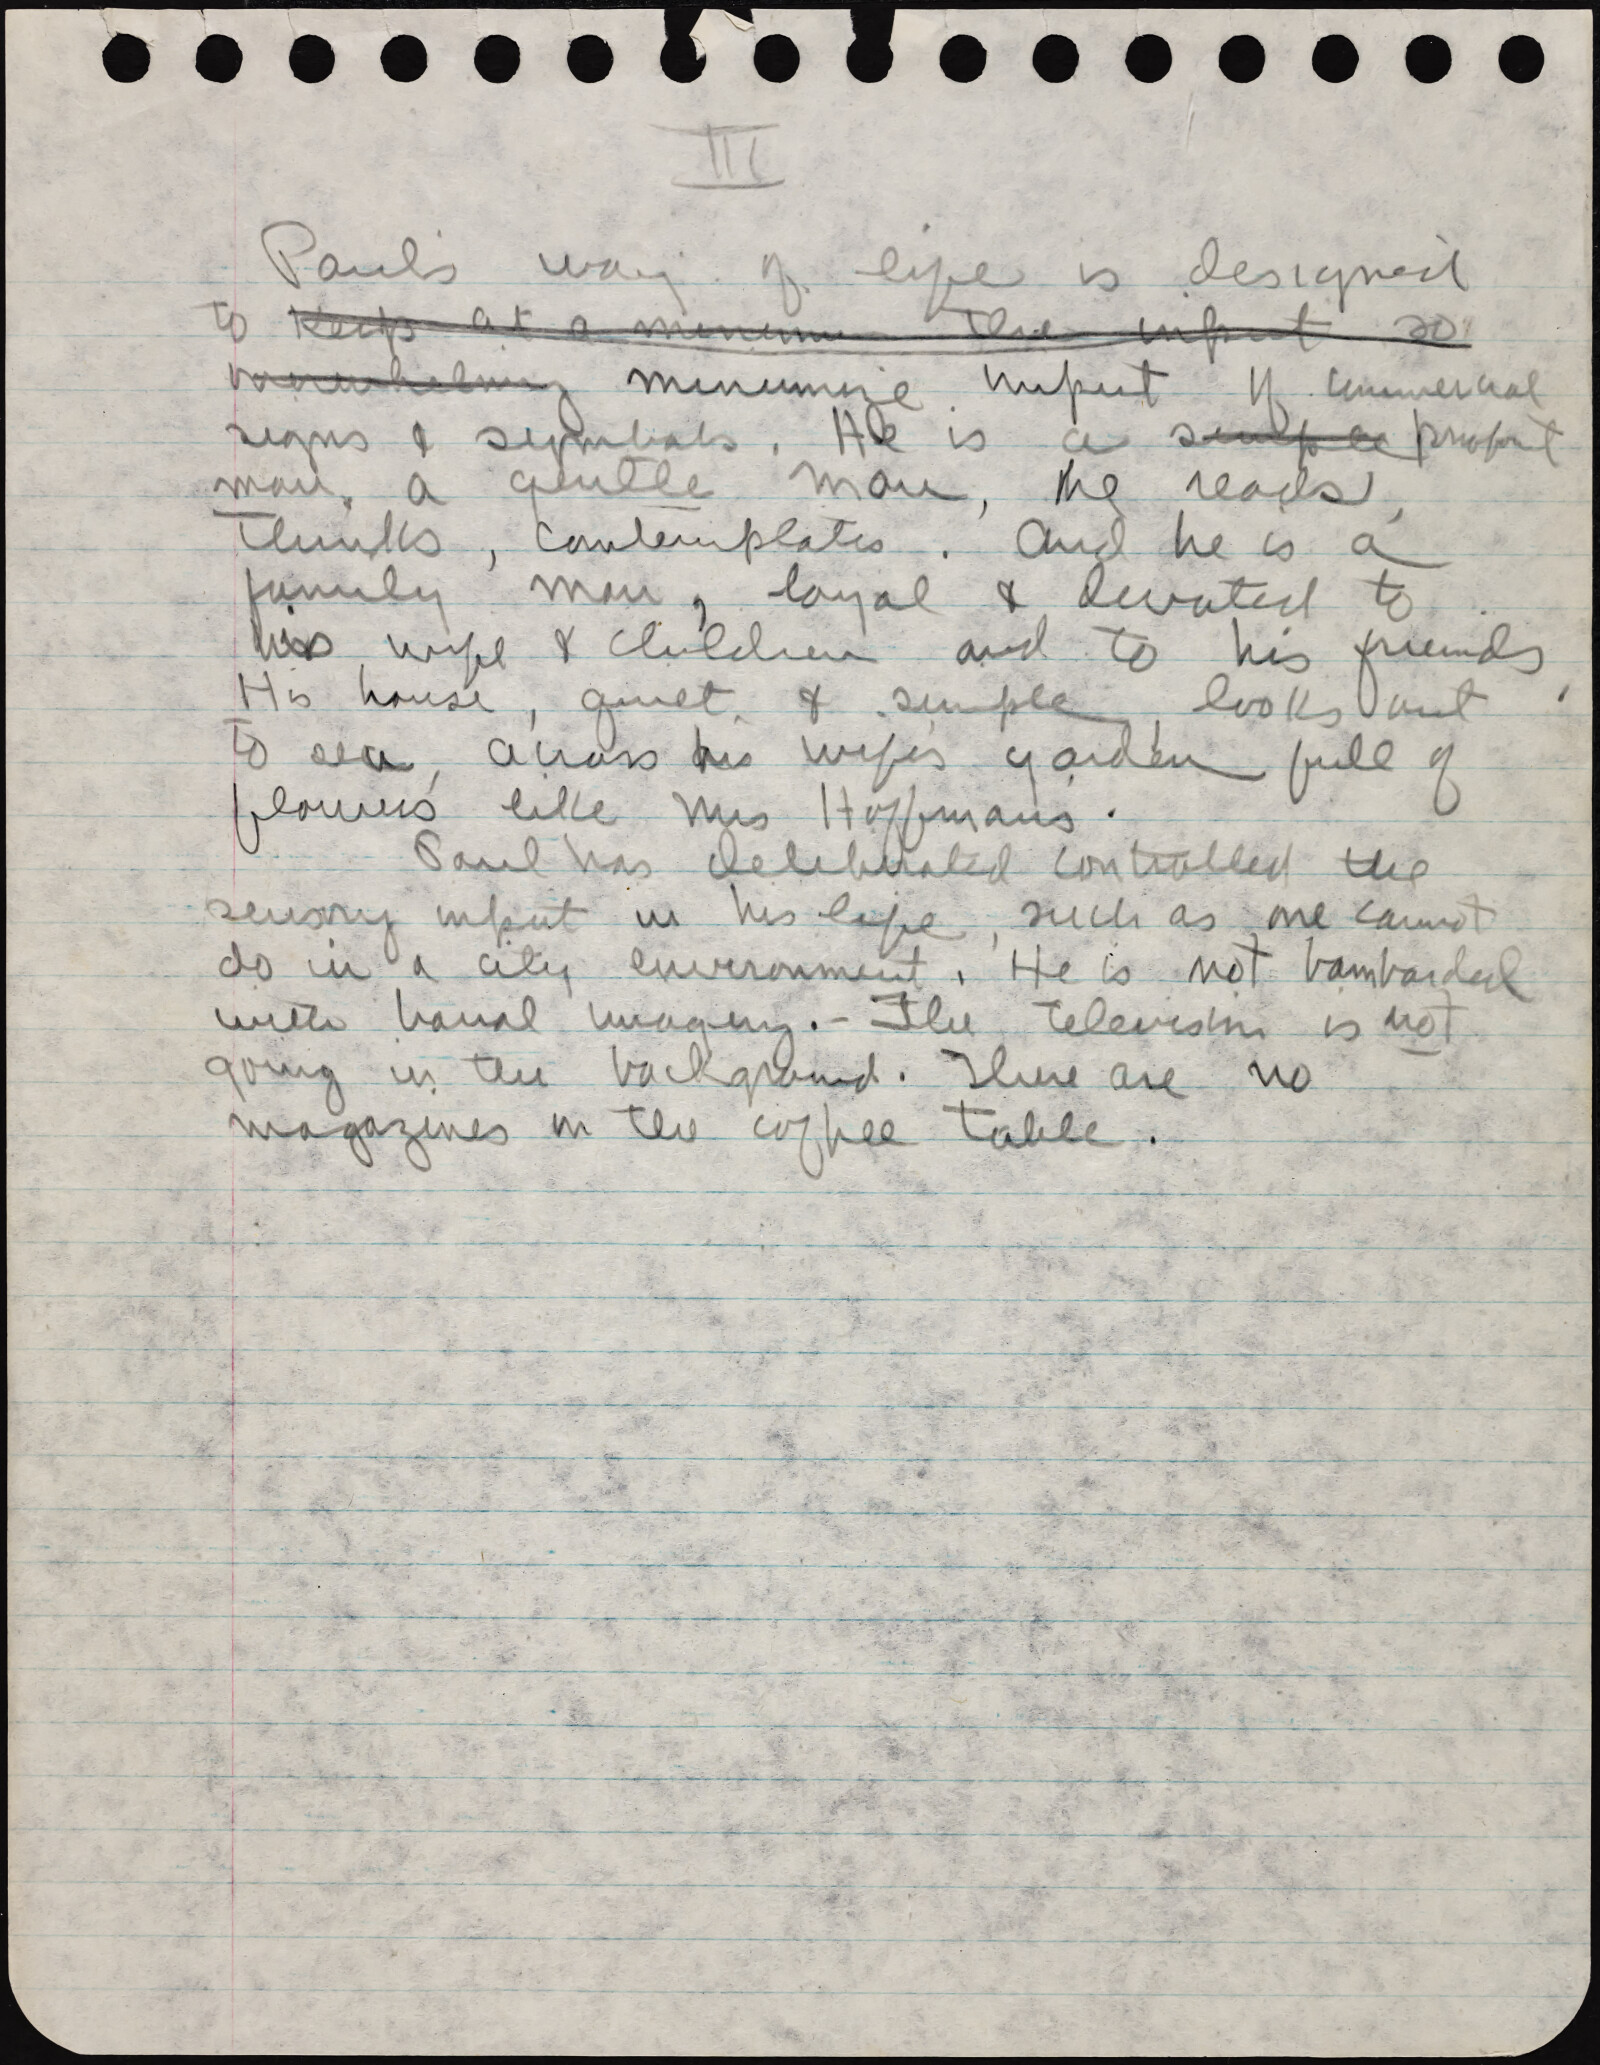 III
Paul's way of life is designed
to keep at a minimum the input so
overwhelming minimize input of commercial
signs & symbols. He is a simple private
man, a gentle man, he reads,
thinks, contemplates. And he is a
family man, loyal & devoted to
his wife & children and to his friends.
His house, quiet & simple, looks out
to sea, across his wife's garden full of
flowers like Mrs Hoffman's.
Paul has deliberated controlled the
sensory input in his life, such as one cannot
do in a city environment. He is not bombarded
with banal imagery. - The television is not
going in the background. There are no
magazines on the coffee table.